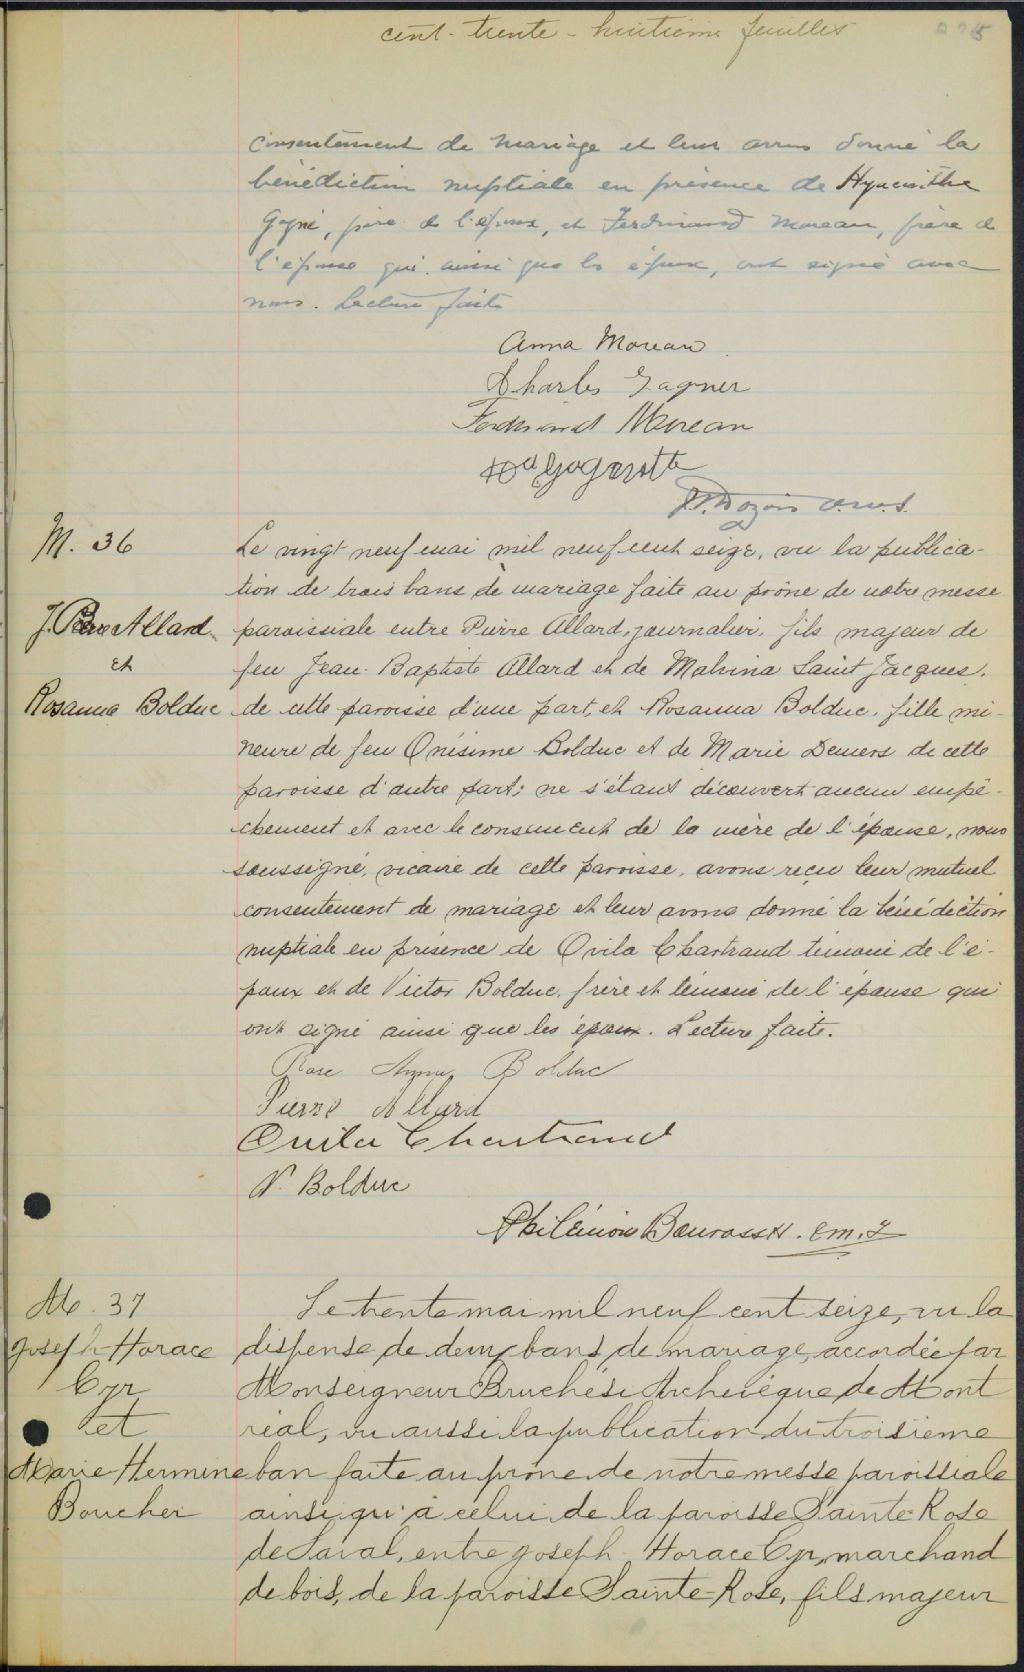 cent-trente-huitième feuillet
consentement de mariage et leur avons donné la
bénédiction nuptiale en présence de Hyacinthe
Gagné, père de l'époux, et Ferdinand Moreau, frère de
l'épouse qui, ainsi que les époux, ont signé avec
nous. Lecture faite
Anna Moreau
Charles Gagner
Ferdinand Moreau
M. 36
Le vingt neuf mai mil neuf cent seize, vu la publica-
tion de trois bans de mariage faite au prône de notre messe
J. Pierre Allard
paroissiale entre Pierre Allard, journalier, fils majeur de
et
feu Jean-Baptiste Allard et de Malvina Saint Jacques,
Rosanna Bolduc
de cette paroisse d'une part, et Rosanna Bolduc, fille mi-
neure de feu Onésime Bolduc et de Marie Demers de cette
paroisse d'autre part; ne s'étant découvert aucun empê-
chement et avec le consentement de la mère de l'épouse, nous
soussigné, vicaire de cette paroisse, avons reçu leur mutuel
consentement de mariage et leur avons donné la bénédiction
nuptiale en présence de Ovila Chartrand témoin de l'é-
poux et de Victor Bolduc, frère et témoin de l'épouse qui
ont signé ainsi que les époux. Lecture faite.
Rose Anna Bolduc
Pierre Allard
Ovila Chartrand
V. Bolduc
Philémon Bourassa
M. 37
Le trente mai mil neuf cent seize, vu la
Joseph-Horace
dispense de deux bans de mariage, accordée par
Cyr
Monseigneur Bruchési Archevêque de Mont
et
réal, vu aussi la publication du troisième
Marie-Hermine
ban faite au prône de notre messe paroissiale
Boucher
ainsi qu'à celui de la paroisse Sainte-Rose
de Laval, entre Joseph-Horace Cyr, marchand
de bois, de la paroisse Sainte-Rose, fils majeur